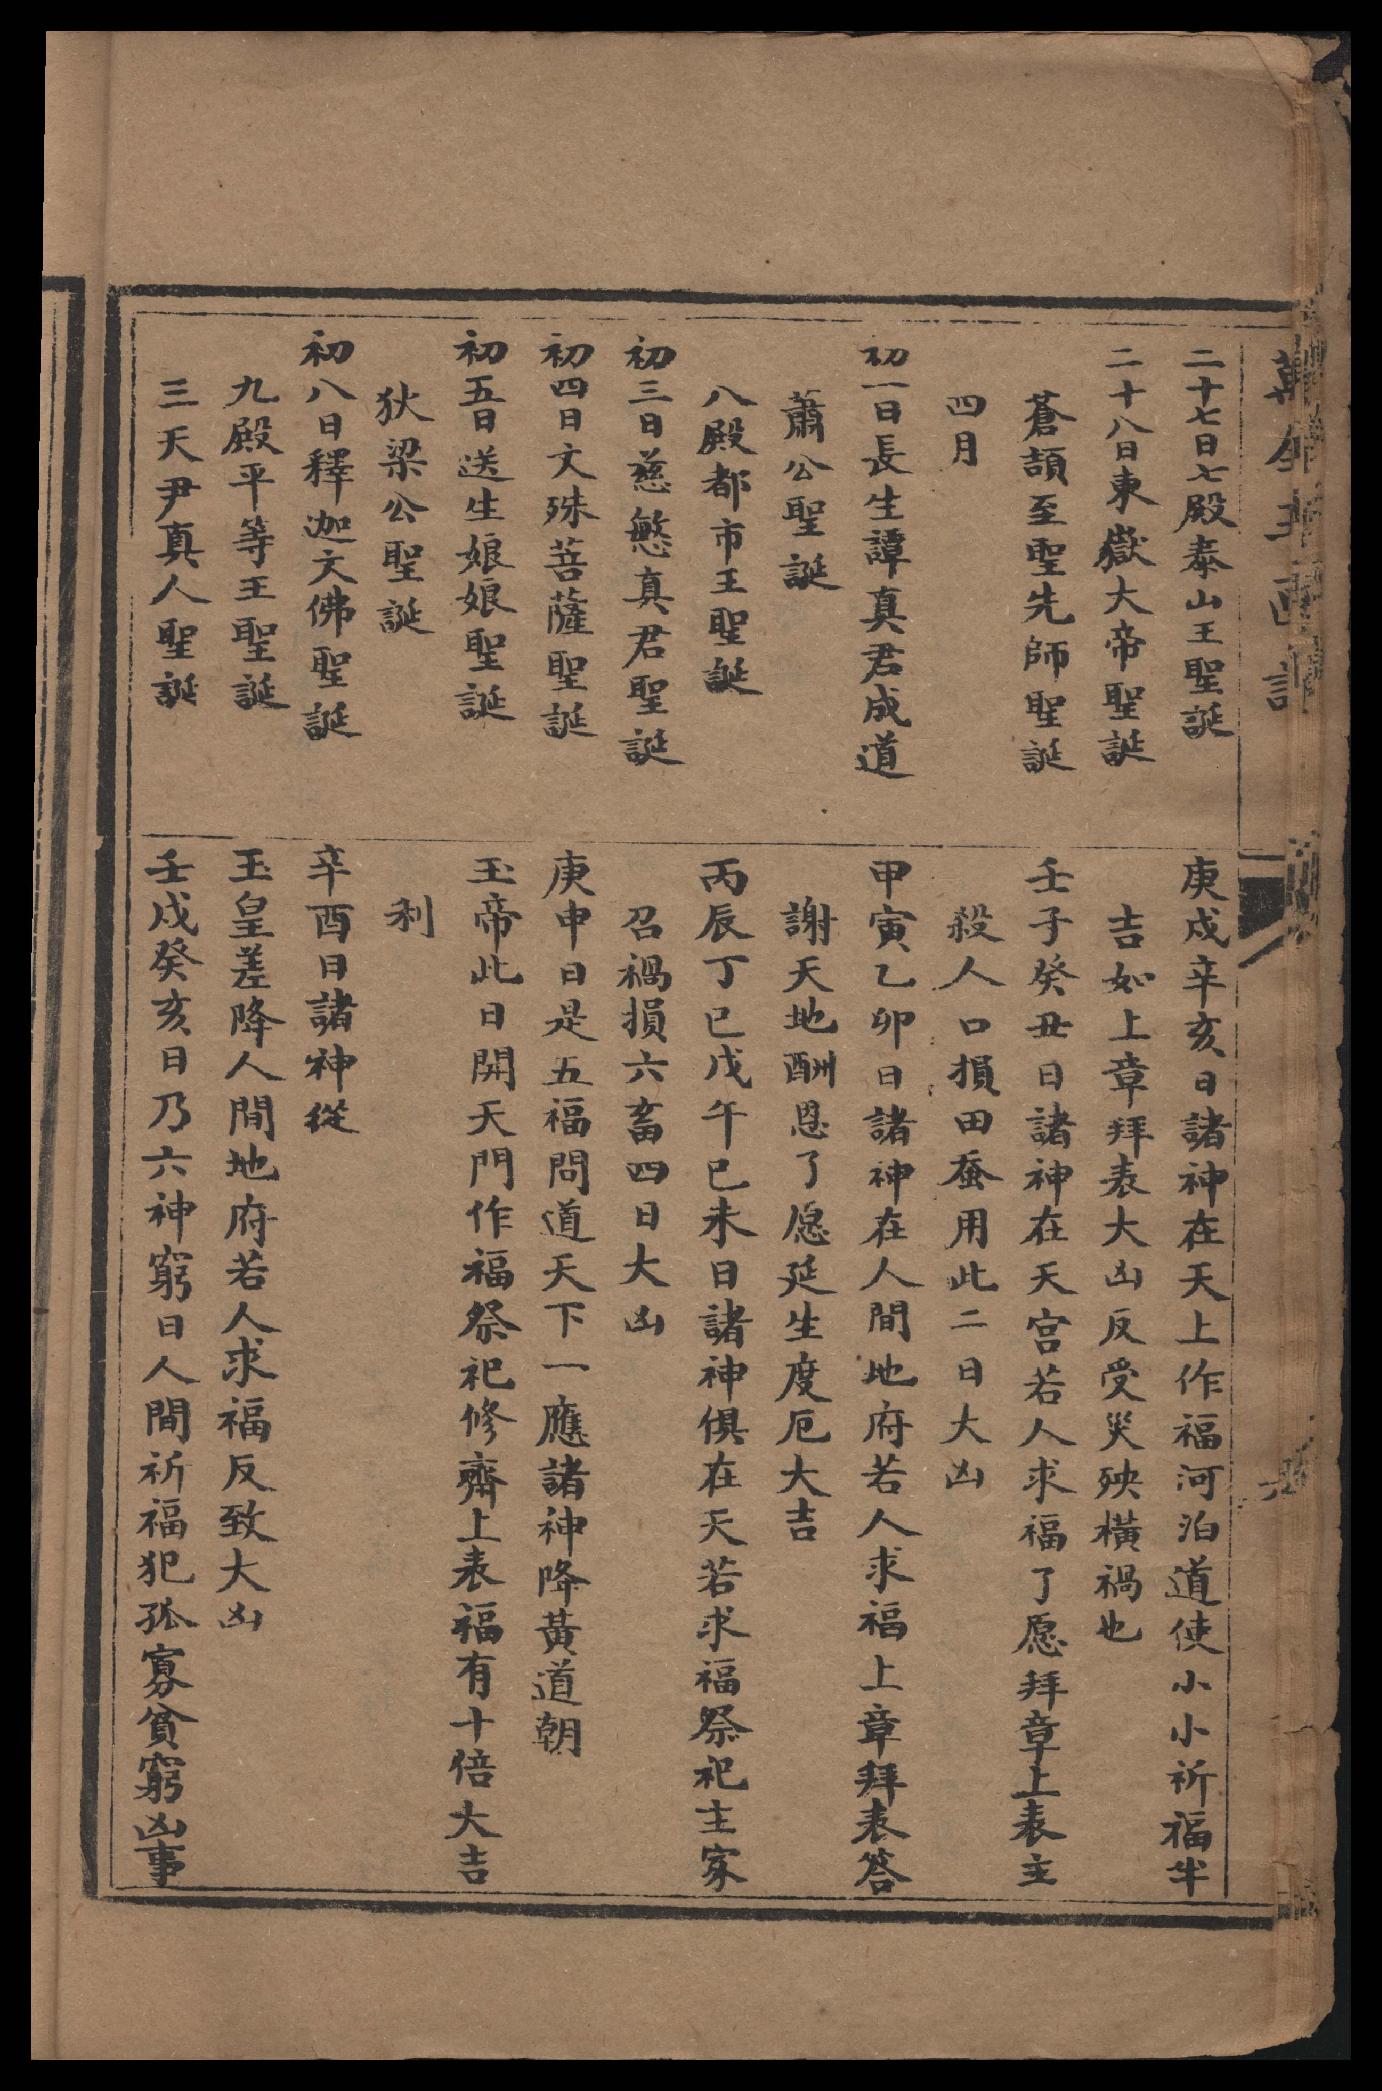 二十七日七殿泰山王聖誕
二十八日東嶽大帝聖誕
蒼頡至聖先師聖誕
四月
初一日長生譚真君成道
蕭公聖誕
八殿都市王聖誕
初三日慈慜真君聖誕
初四日文殊菩薩聖誕
初五日送生娘娘聖誕
狄梁公聖誕
初八日釋迦文佛聖誕
九殿平等王聖誕
三天尹真人聖誕
庚戌辛亥日諸神在天上作福河泊道使小小祈福半
吉如上章拜表大凶反受災殃橫禍也
壬子癸丑日諸神在天宮若人求福了愿拜章上表主
殺人口損田蚕用此二日大凶
甲寅乙卯日諸神在人間地府若人求福上章拜表答
謝天地酬恩了愿延生度厄大吉
丙辰丁巳戊午巳未日諸神俱在天若求福祭祀主家
召禍損六畜四日大凶
庚申日是五福問道天下一應諸神降黃道朝
玉帝此日開天門作福祭祀修齋上表福有十倍大吉
利
辛酉日諸神從
玉皇差降人間地府若人求福反致大凶
壬戌癸亥日乃六神窮日人間祈福犯孤寡貧窮凶事